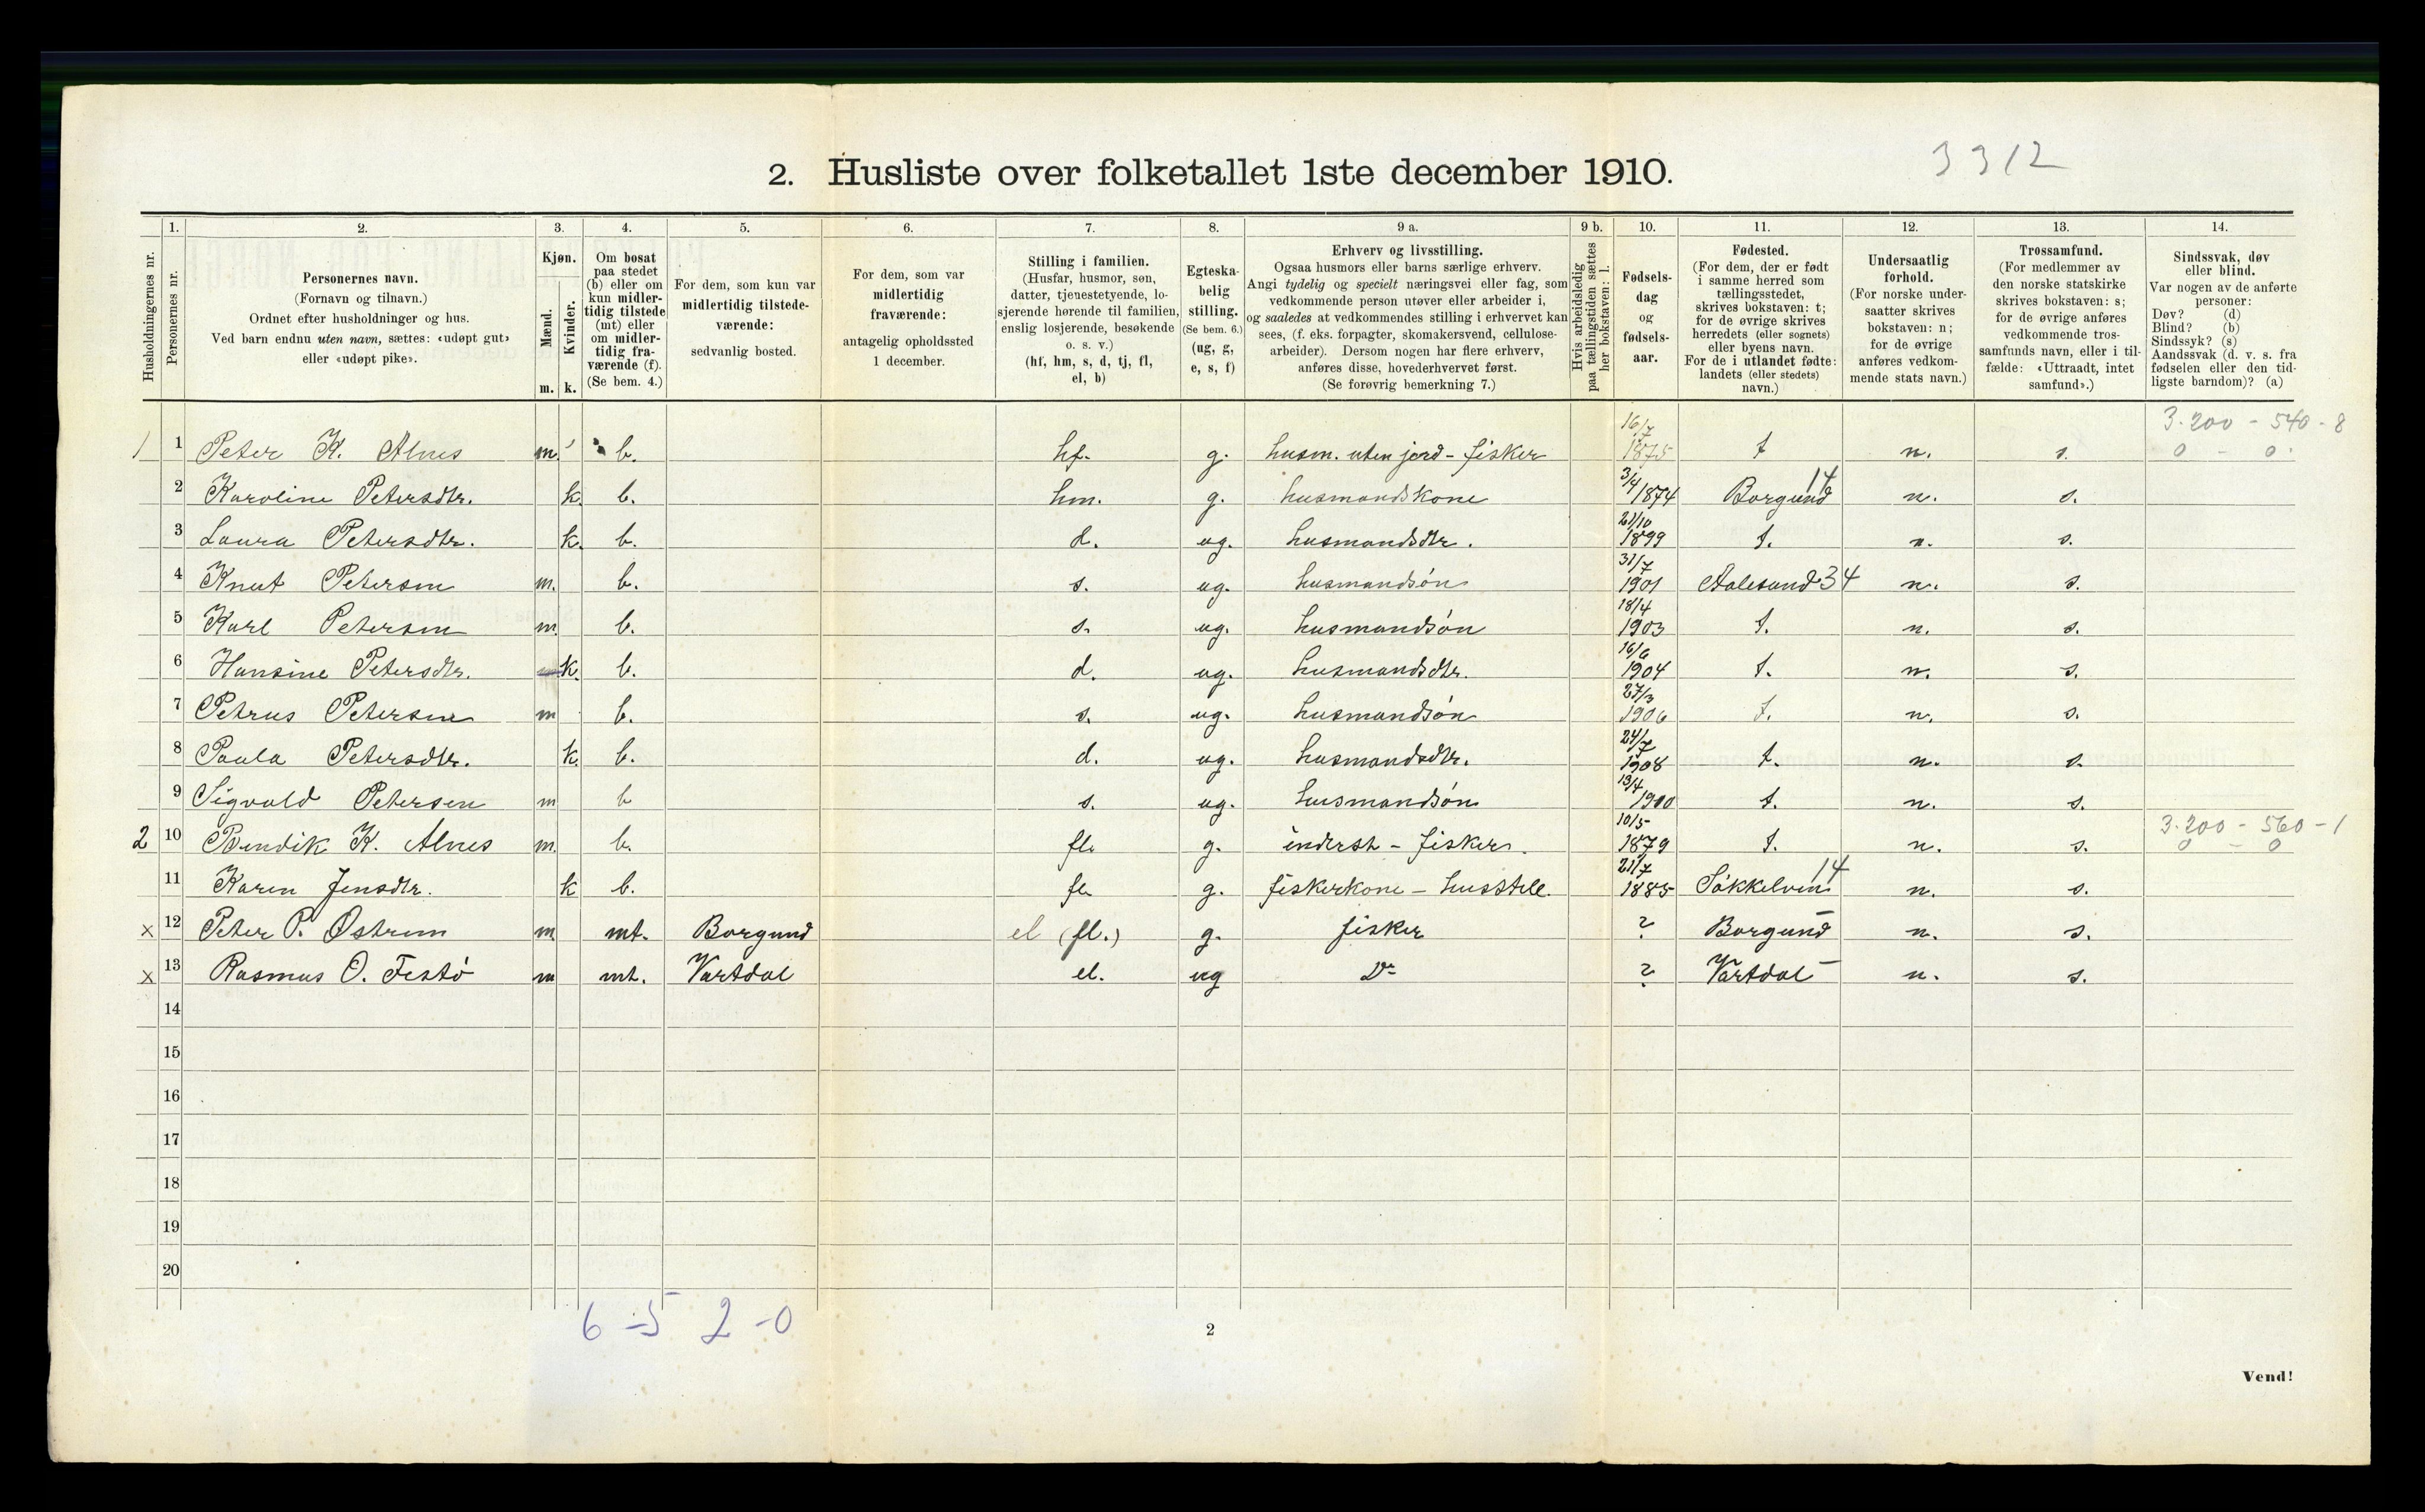 3312
2. Husliste over folketallet 1ste december 1910.
Husholdningernes nr.
1. Personernes nr.
2. Personernes navn.
(Fornavn og tilnavn.)
Ordnet efter husholdninger og hus.
Ved barn endnu uten navn, sættes: «udøpt gut»
eller «udøpt pike».
3. Kjøn.
Mænd. m.
Kvinder. k.
4. Om bosat
paa stedet
(b) eller om
kun midler-
tidig tilstede
(mt) eller
om midler-
tidig fra-
værende (f).
(Se bem. 4.)
5. For dem, som kun var
midlertidig tilstede-
værende:
sedvanlig bosted.
6. For dem, som var
midlertidig
fraværende:
antagelig opholdssted
1 december.
7. Stilling i familien.
(Husfar, husmor, søn,
datter, tjenestetyende, lo-
sjerende hørende til familien,
enslig losjerende, besøkende
o. s. v.)
(hf, hm, s, d, tj, fl,
el, b)
8. Egteska-
belig
stilling.
(Se bem. 6.)
(ug, g,
e, s, f)
9 a. Erhverv og livsstilling.
Ogsaa husmors eller barns særlige erhverv.
Angi tydelig og specielt næringsvei eller fag, som
vedkommende person utøver eller arbeider i,
og saaledes at vedkommendes stilling i erhvervet kan
sees, (f. eks. forpagter, skomakersvend, cellulose-
arbeider). Dersom nogen har flere erhverv,
anføres disse, hovederhvervet først.
(Se forøvrig bemerkning 7.)
9 b. Hvis arbeidsledig
paa tællingstiden sættes
her bokstaven: l.
10. Fødsels-
dag
og
fødsels-
aar.
11. Fødested.
(For dem, der er født
i samme herred som
tællingsstedet,
skrives bokstaven: t;
for de øvrige skrives
herredets (eller sognets)
eller byens navn.
For de i utlandet fødte:
landets (eller stedets)
navn.)
12. Undersaatlig
forhold.
(For norske under-
saatter skrives
bokstaven: n;
for de øvrige
anføres vedkom-
mende stats navn.)
13. Trossamfund.
(For medlemmer av
den norske statskirke
skrives bokstaven: s;
for de øvrige anføres
vedkommende tros-
samfunds navn, eller i til-
fælde: «Uttraadt, intet
samfund».)
14. Sindssvak, døv
eller blind.
Var nogen av de anførte
personer:
Døv? (d)
Blind? (b)
Sindssyk? (s)
Aandssvak (d. v. s. fra
fødselen eller den tid-
ligste barndom)? (a)
1 1 Peter K. Alnes m. b. hf. g. husm. uten jord - fisker 16/7 1875 t n. s. 3.200 - 540 - 8 0 - 0.
2 Karoline Petersdtr. k. b. hm. g. husmandskone 3/4 1874 Borgund 14 n. s.
3 Laura Petersdtr. k. b. d. ug. husmandsdtr. 21/10 1899 t. n. s.
4 Knut Petersen m. b. s. ug. husmandsøn 31/7 1901 Aalesund 34 n. s.
5 Karl Petersen m. b. s. ug. husmandsøn 18/4 1903 t. n. s.
6 Hansine Petersdtr. k. b. d. ug. husmandsdtr. 16/6 1904 t. n. s.
7 Petrus Petersen m b. s. ug. husmandsøn 27/3 1906 t. n. s.
8 Paula Petersdtr. k. b. d. ug. husmandsdtr. 24/7 1908 t. n. s.
9 Sigvald Petersen m b s. ug. husmandsøn 1910 t. n. s.
2 10 Bendik K. Alnes m. b. fl. g. inderst - fisker. 10/5 1879 t. n. s. 3.200 - 560 - 1 0 - 0
11 Karen Jensdtr. k b. fl. g. fiskerkone - husstell. 21/7 1885 Søkkelven 14 n. s.
x 12 Peter P. Østrem m mt. Borgund el (fl.) g. fisker ? Borgund n. s.
x 13 Rasmus O. Festø m mt. Vartdal el. ug Do ? Vartdal n. s.
14
15
16
17
18
19
20
6 - 5 2 - 0
2
Vend!